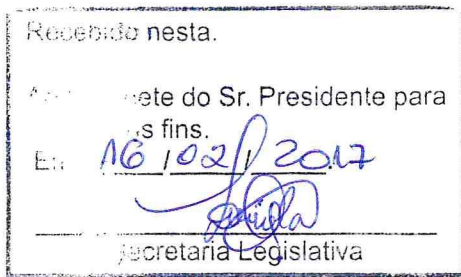 Recebido nesta.
do Sr. Presidente para
fins.
16 / 02 / 2017
Secretaria Legislativa